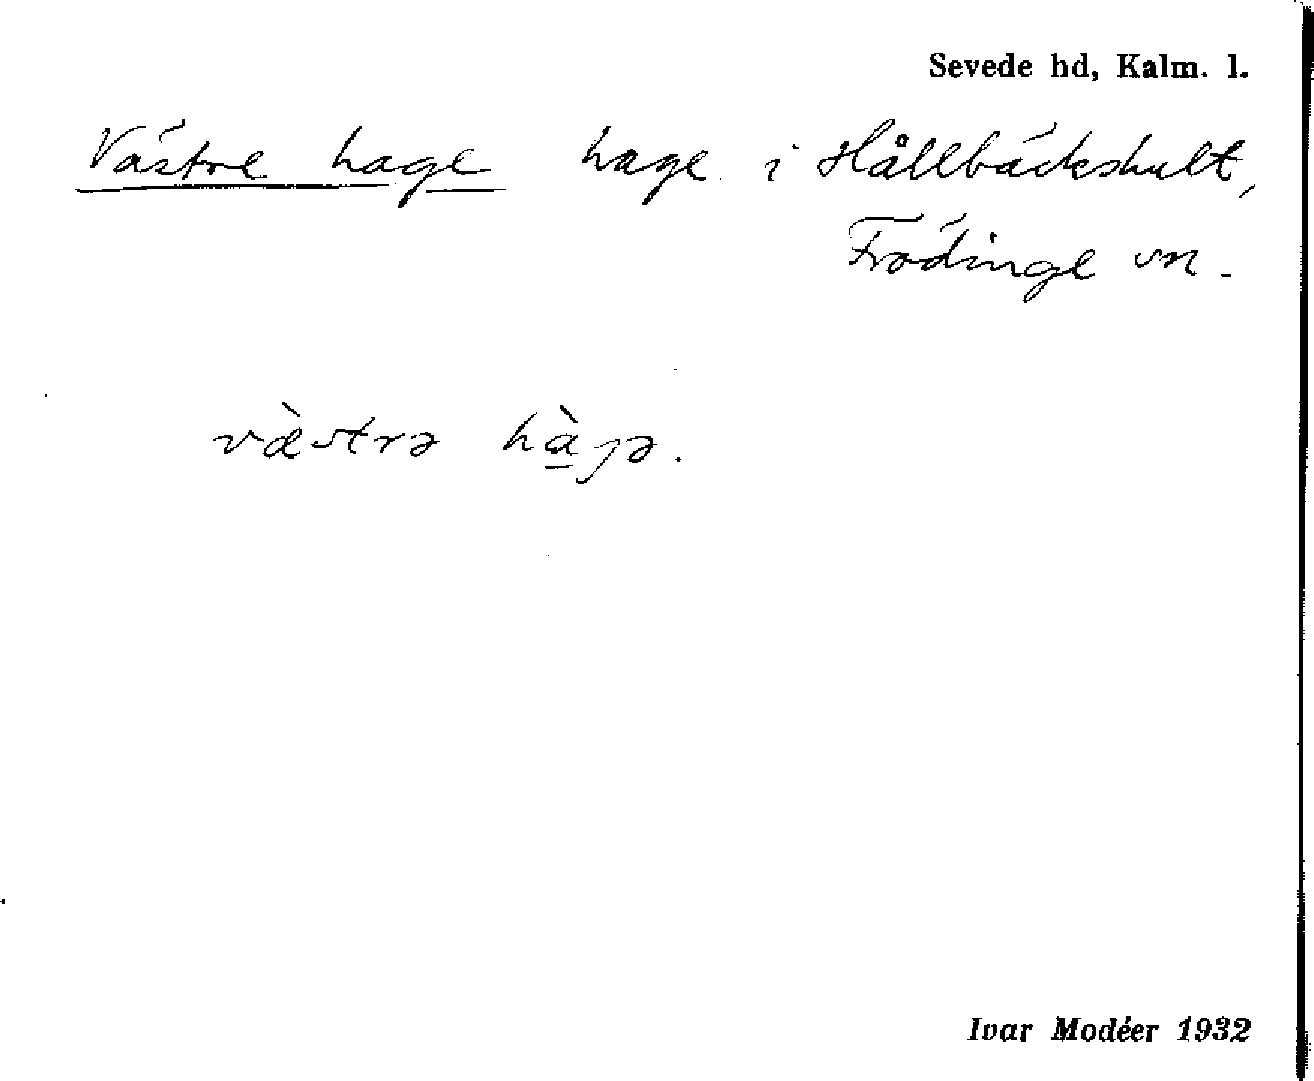 Sevede hd, Kalm. l.
Västre hage hage i Hållbäckshult,
Frödinge sn.
væ̀strə hà̱gə.
Ivar Modéer 1932